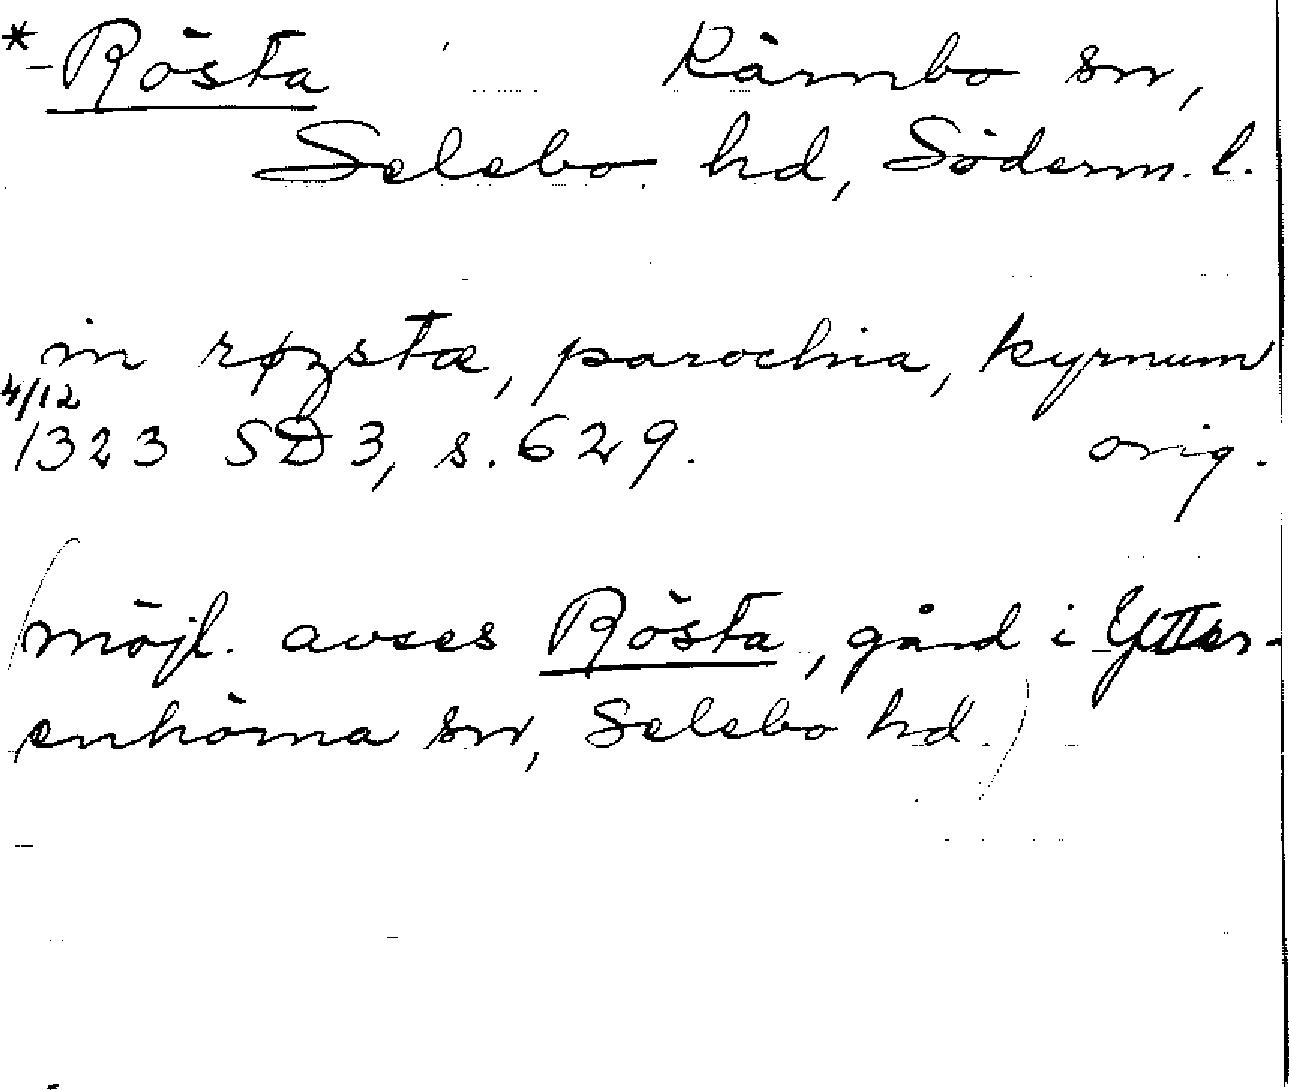 *-Rösta Kärnbo sn,
Selebo hd, Söderm. l.
in røzstæ, parochia, kyrnum
4/12
1323 SD 3, s. 629. orig.
(möjl. avses Rösta, gård i Ytter-
enhörna sn, Selebo hd.)